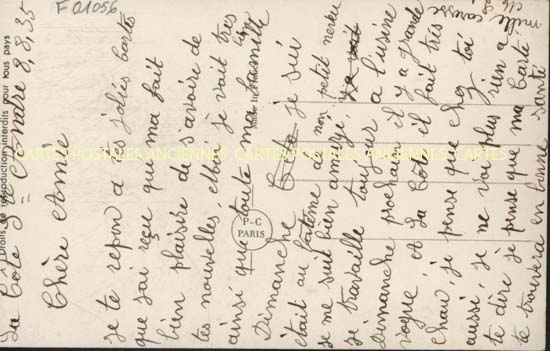 F 01056
La Côte St André 8,8,35
Chère Amie
je te repon a tes jolies carte
que j'ai reçu qui ma fait
bien plaisire de d'avoire de
tes nouvelles, ebbien je vait tres bien
ainsi que toute ma famille
Dimanche je sui
était au batême a mon petit neveu
je me suit bien amusé,
je travaille toujour a l'usine
Dimanche prochain il y a grande
vogue a La Côte il fait très
chau, je pense que chez toi
aussi, je ne voi plus rien a
te dire je pense que ma carte
te trouvera en bonne santé
mille caresse
Droits de reproduction interdits pour tous pays
P-C
PARIS
CARTES POSTALES ANCIENNES CARTES POSTALES ANCIENNES CARTES